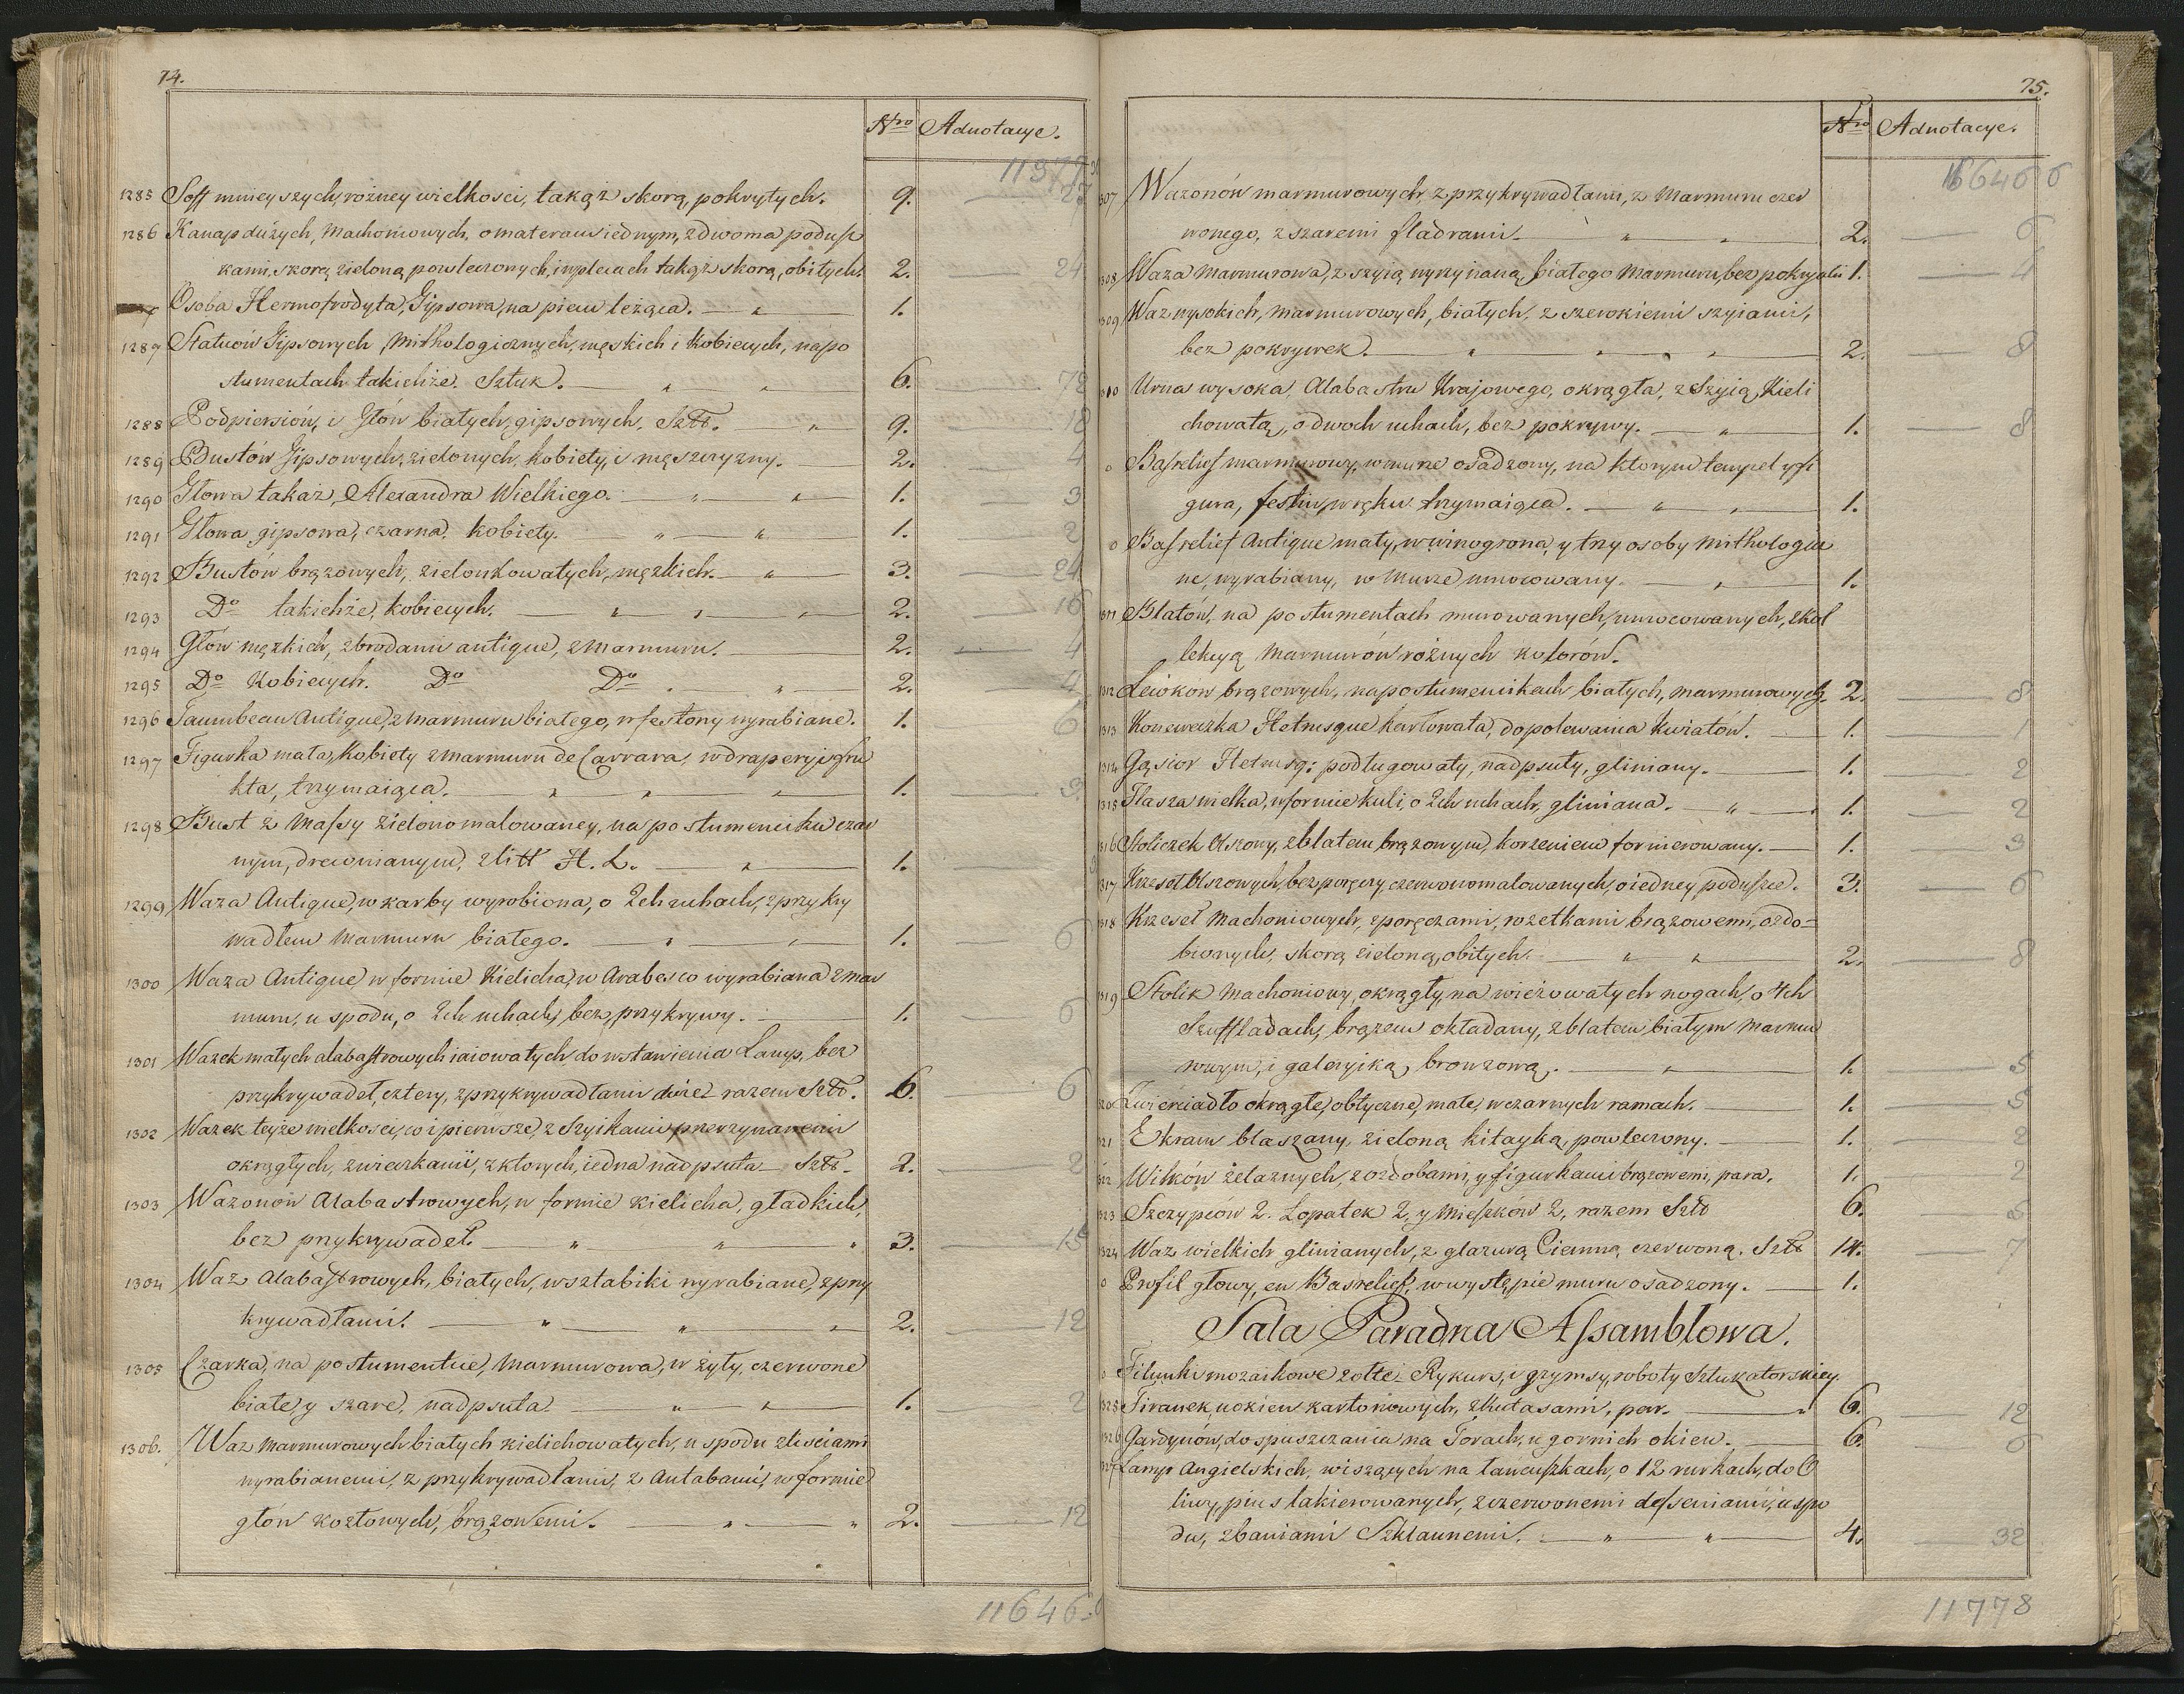 74.
Nro Adnotacye.
11377
1285 Soff mnieyszych, rożney wielkosci, takąż skorą, pokrytych. 9. 27
1286 Kanap dużych, Machoniowych, o materacu iednym, z dwoma podusz
kami, skorą zieloną powleczonych, i w plecach takąż skorą, obitych. 2. 24
Osoba Hermofrodyta, Gipsowa, na piecu leżąca. 1.
1287 Statuów Gipsowych, Mithologicznych, męskich i Kobiecych, na po
stumentach takichże. Sztuk. 6. 72
1288 Podpiersiów, i Głów białych, gipsowych. Sztk. 9. 18
1289 Bustów Gipsowych, zielonych, kobiety, i męszczyzny. 2. 4
1290 Głowa takaż, Alexandra Wielkiego. 1. 3
1291 Głowa gipsowa, czarna, kobiety. 1. 2
1292 Bustow brązowych, zielonkowatych, męzkich. 3. 24
1293 Do takichże, kobiecych. 2. 16
1294 Głow męzkich, z brodami antique, z Marmuru. 2. 4
1295 Do Kobiecych. Do Do 2. 4
1296 Taumbeau Antique, z Marmuru białego, w festony wyrabiane. 1. 6
1297 Figurka mała, Kobiety z Marmuru de Carrara, w draperyi, fru
kta, trzymaiąca. 1. 3
1298 Bust z Massy zielono malowaney, na postumenciku czar
nym, drewnianym, z litt H. L. 1.
1299 Waza Antique, w karby wyrobiona, o 2ch uchach, z przykry
wadłem Marmuru białego. 1. 6
1300 Waza Antique, w formie Kielicha, w Arabesco wyrabiana z mar
muru, u spodu, o 2ch uchach, bez przykrywy. 1. 6
1301 Wazek małych alabastrowych iaiowatych, do wstawienia Lamp, bez
przykrywadeł, cztery, z przykrywadłami dwie razem Sztk. 6. 6
1302 Wazek teyże wielkosci, co i pierwsze, z Szyikami przerzynanemi
okrągłych, z wieczkami, z ktorych, iedna nadpsuta Sztk. 2. 2
1303 Wazonów Alabastrowych, w formie kielicha, gładkich,
bez przykrywadeł. 3. 15
1304 Waz Alabastrowych, białych, w sztabiki wyrabiane, z przy
krywadłami. 2. 12
1305 Czarka, na postumentcie, Marmurowa, w żyły, czerwone
białe, y szare, nadpsuta. 1. 2
1306. Waz Marmurowych białych kielichowatych, u spodu z lisciami
wyrabianemi, z przykrywadłami, z Antabami, w formie
głów kozłowych, brązowemi. 2. 12
11646
75.
Nro Adnotacye.
11646 6
1307 Wazonów marmurowych, z przykrywadłami, z Marmuru czer
wonego, z szaremi fladrami. 2. 6
1308 Waza Marmurowa, z szyią wyrzynaną, białego Marmuru, bez pokrywki 1. 4
1309 Waz wysokich, Marmurowych, białych, z szerokiemi szyiami,
bez pokrywek. 2. 8
1310 Urna wysoka, Alabastru Krajowego, okrągła, z Szyią, Kieli
chowatą, o dwoch uchach, bez pokrywy. 1. 8
0 Basrelief marmurowy, w murze osadzony, na ktorym tempel y fi
gura, festiw, w ręku trzymaiąca. 1.
0 Basrelief Antique mały, w winogrona, y trzy osoby Mithologicz
ne, wyrabiany, w Murze umocowany. 1.
1311 Blatów, na postumentach murowanych, umocowanych, z kol
lekcyą Marmurów rożnych kolorów.
1312 Lewków brązowych, na postumencikach białych, marmurowych. 2. 8
1313 Koneweczka Hetrusque karłowata, do polewania kwiatów. 1. 1
1314 Gąsior Hetrusq: podługowaty, nadpsuty, gliniany. 1. 2
1315 Flasza wielka, w formie kuli, o 2ch uchach, gliniana. 1. 2
1316 Stoliczek Olszowy, z blatem brązowym, korzeniem fornierowany. 1. 3
1317 Krzeseł Olszowych, bez poręczy, czerwono malowanych, o iedney poduszce. 3. 6
1318 Krzeseł Machoniowych, z poręczami, rozetkami brązowemi, ozdo=
bionych, skorą zieloną, obitych. 2. 8
1319 Stolik Machoniowy, okrągły, na wieżowatych nogach, o 4ch
Szufladach, brązem okładany, z blatem białym Marmu
rowym, i galeryiką, bronzową. 1. 5
1320 Zwierciadło okrągłe, obłyczne, małe, w czarnych ramach. 1. 5
1321 Ekran blaszany, zieloną kitayką, powleczony. 1. 2
1322 Wilków żelaznych, z ozdobami, y figurkami brązowemi, para. 1. 2
1323 Szczypców 2. Łopatek 2, y Mieszków 2, razem Sztk 6. 5
1324 Waz wielkich glinianych, z glazurą Ciemną czerwoną. Sztk 14. 7
0 Profil głowy, en Basrelief, w występie muru osadzony. 1.
Sala Paradna Assamblowa.
0 Filunki mozaikowe zołte. Rykurs, i gzymsy, roboty Sztukatorskiey.
1325 Firanek, u okien kartonowych, z kutasami, par. 6. 12
1326 Gardynów, do spuszczania na Torach, u gornich okien. 6. 6
1327 Lamp Angielskich, wiszących na łancuszkach, o 12 rurkach, do O
liwy, pius lakierowanych, z czerwonemi desseniami, u spo
du, z baniami Szklannemi. 4. 32
11778